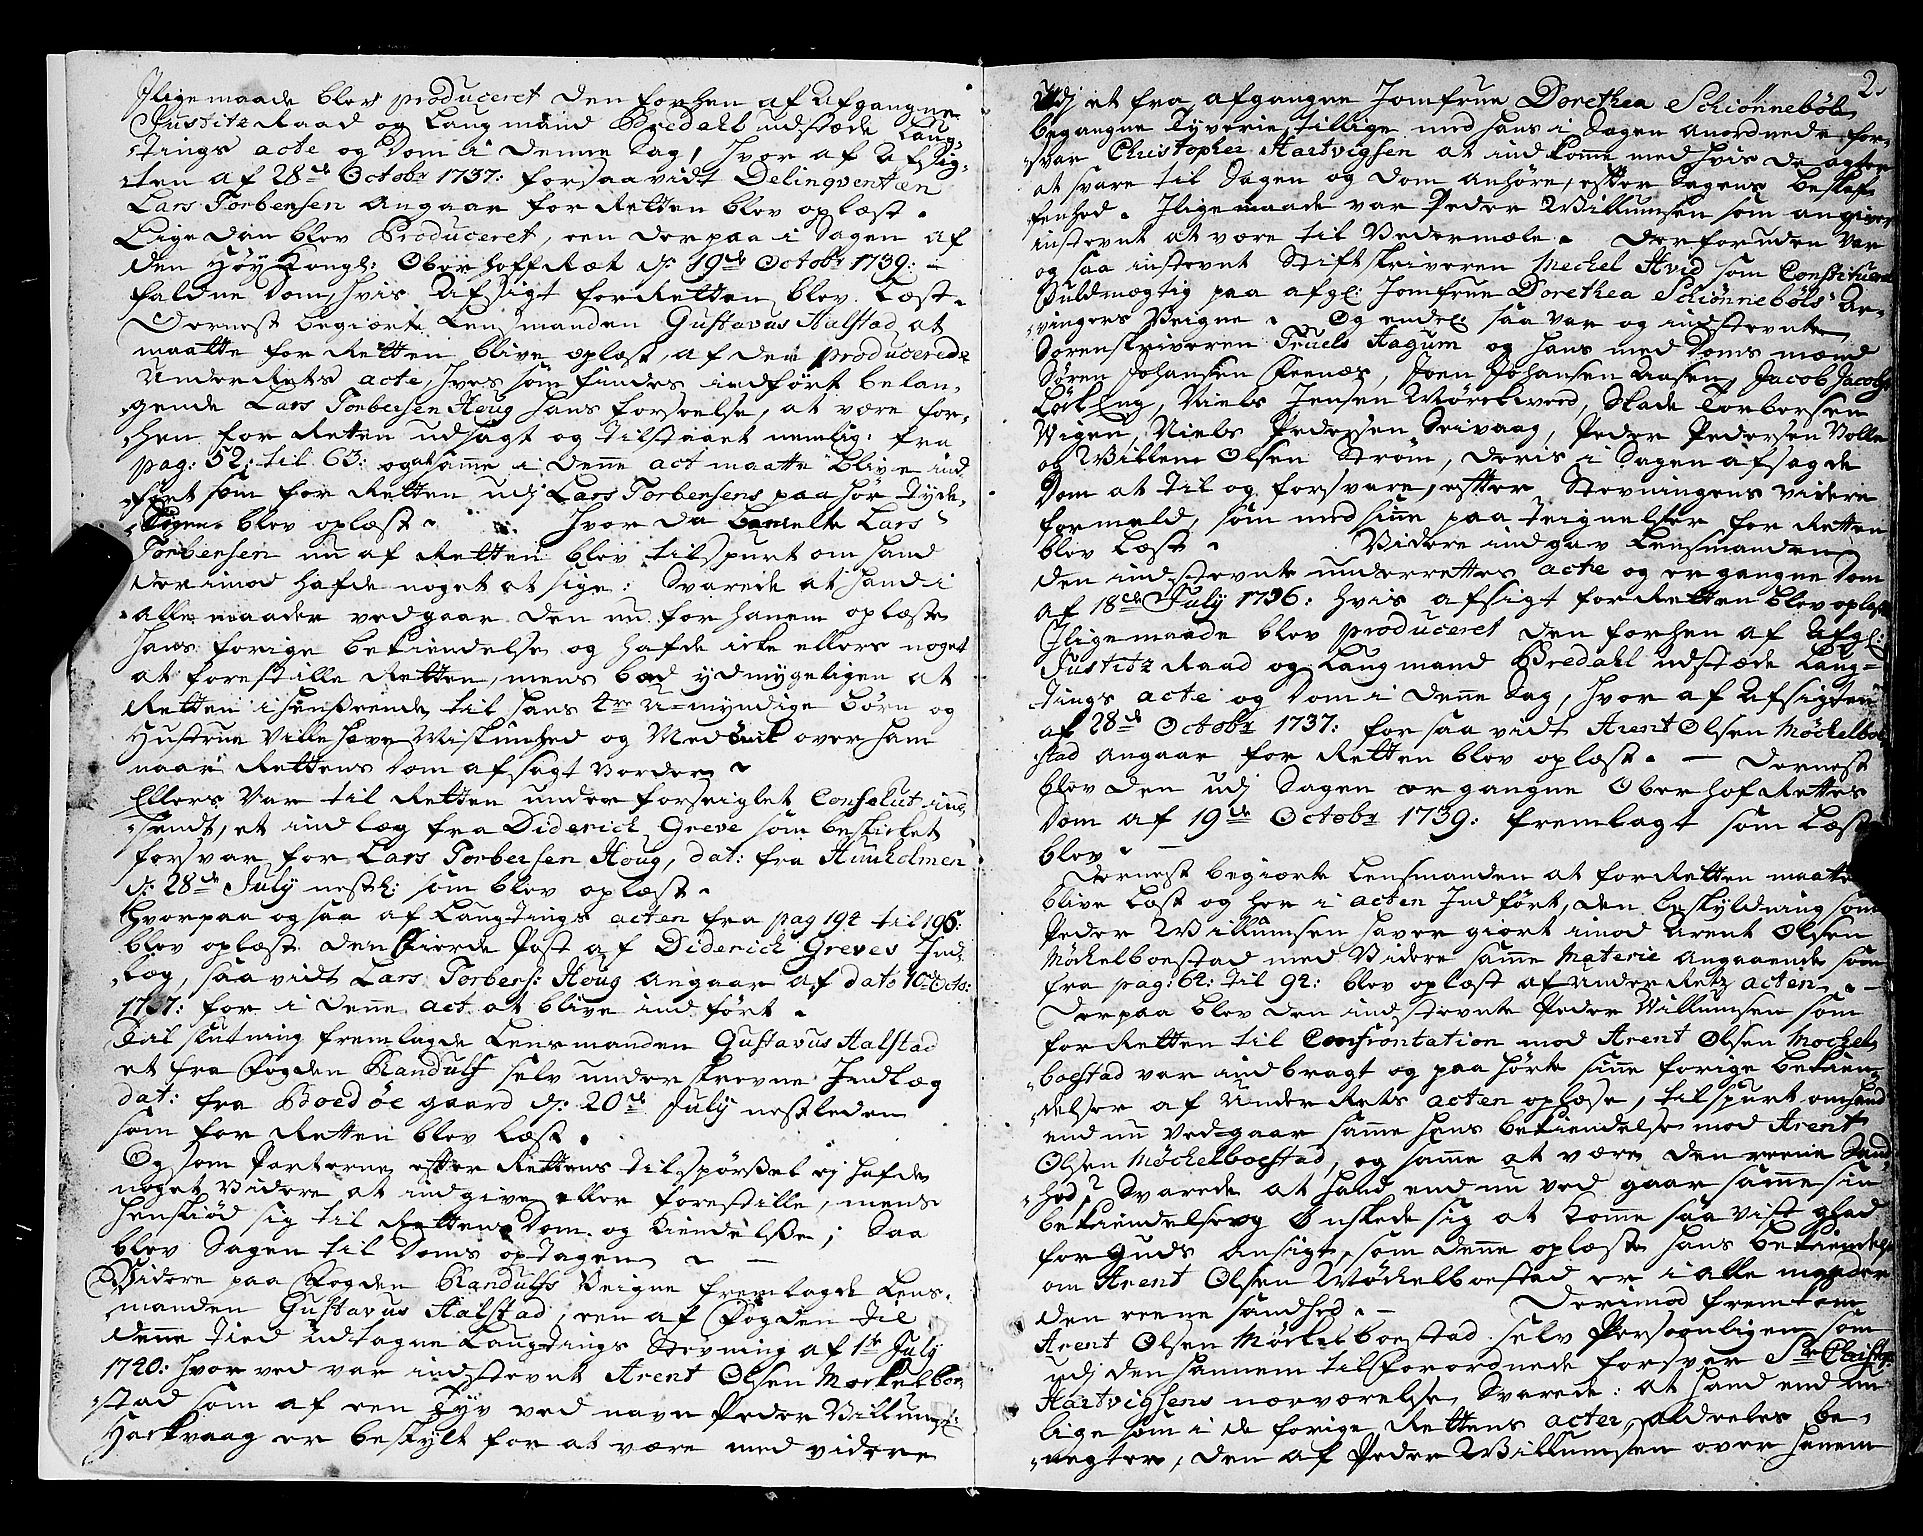 Iligemaade blev produceret den forhen af Afgangne
Justitz Raad og Laugmand Bredahl udstæde Laug-
tings acte og Dom i denne Sag, hvor af Afsig-
ten af 28de Octobr 1737: forsaavidt Delinqventen
Lars Torbensen Angaar for Retten blev oplæst.
Ligedan blev Produceret, een derpaa i Sagen af
den Høy Kongl: OberhoffRæt d: 19de Octobr 1739:
faldne Dom, hvis Afsigt for Retten blev Læst.
Dernest begiærte Lensmanden Gustavus Halstad at
maatte for Retten blive oplæst, af den producerede
UnderRets acte, hves som findes indført belan-
gende Lars Torbersen Houg hans forseelse, at være for-
hen for Reten udsagt og tilstaaet nemlig: fra
pag: 52: til 63: og at samme i denne act maatte blive ind
ført som for Retten udj Lars Torbensens paahør tyde-
ligen blev oplæst. Hvor da bemelte Lars
Torbensen nu af Retten blev tilspurt om hand
derimod hafde noget at sige: Svarede at hand i
alle maader vedgaar den nu for hanem oplæste
hans forige bekiendelse og hafde icke ellers noget
at forestille Retten, mens bad ydmygeligen at
Retten i henseende til hans 4re U-myndige børn og
Hustrue Ville have Miskundhed og Medynk over ham
naar Rettens Dom afsagt vorder.
Ellers Var til Retten under forseiglet Conselut ind-
sendt, et indlæg fra Diderich Greve som beskicket
forsvar for Lars Torbersen Houg, dat: fra Hunholmen
d: 28de July nestl: som blev oplæst.
Hvorpaa og saa af Laugtings acten fra pag 194 til 196:
blev oplæst den fierde Post af Diderich Greves Ind-
læg, saavidt Lars Torbers: Houg Angaar af dato 16de Octo:
1737: for i denne act at blive indført.
Til slutning fremlagde Lensmanden Gustavus Halstad
et fra Fogden Randulf selv underskrevne Indlæg
dat: fra Boedøe gaard d: 20de July nestleden
som for Retten blev Læst.
Og som Parterne efter Rettens tilspørsel ej hafde
noget videre at indgive eller forestille, mens
henskiød sig til Rettens Dom og Kiendelse; Saa
blev Sagen til Doms optagen.
Videre paa Fogden Randulfs Veigne fremlagde Lens-
manden Gustavus Halstad, een af Fogden til
denne tiid udtagne Laugtings Stevning af 1te July
1740: hvor ved var indstevnt Arent Olsen Mockelboe
stad som af een Tyv ved navn Peder Villums:
Harkvaag er beskylt for at være med videre
2.
Udj et fra afgangne Jomfrue Dorethea Schiønnebøls
begangne Tyverie, tillige med hans i Sagen anordnede for-
svar Christopher Hartvigsen at indkomme med hvis de agter
at svare til Sagen og Dom anhøre, efter Sagens beskaf-
fenhed. Iligemaade var Peder Willumsen som angiver
instevnt at være til Vedermæle. Derforuden Var
og saa instevnt Stiftskriveren Mechel Hvid som Constitueret
Fuldmægtig paa afgl: Jomfrue Dorethea Schiønnebøls Ar-
vingers Veigne. Og endel: saa var og indstevnte
Sørenskriveren Truels Hagum og hans med Doms mænd
Søren Johansen Fernæs, Joen Johansen Aasen, Jacob Jacobs
LøckEng, Niels Jensen Mørckweed, Skade Torborsen
Vigen, Niels Pedersen Seivaag, Peder Pedersen Volle
og Willem Olsen Strøm, deris i Sagen afsagde
Dom at til og forsvare, efter Stevningens videre
formeld, som med sinne paa teignelser for Retten
blev Læst. Videre indgav Lensmanden
den indstevnte underrettes acte og ergangne Dom
af 18de July 1736: hvis afsigt for Retten blev oplæst
Iligemaade blev produceret den forhen af Afgl:
Justitz Raad og Laugmand Bredahl udstæde Laug-
tings acte og Dom i denne Sag, hvor af Afsigten
af 28de Octobr 1737: for saa vidt Arent Olsen Möckelboe
stad angaar for Retten blev oplæst. Dernest
blev den udj Sagen ergangne OberhofRettes
Dom af 19de Octobr 1739: fremlagt som Læst
blev.
Dernest begiærte Lensmanden at for Retten maatte
blive Læst og her i acten Indført, den beskyldning som
Peder Willumsen haver giort imod Arent Olsen
Möckelboestad med Videre samme Materie Angaaende som
fra pag: 62: til 92: blev oplæst af UnderRetz acten.
Derpaa blev den indstevnte Peder Villumsen som
for Retten til Confrontation mod Arent Olsen Mockel
boestad var indbragt og paahørte sinne forige bekien-
delser af UnderRets acten oplæse, tilspurt om hand
end nu Vedgaar samme hans bekiendelse mod Arent
Olsen Möckelboestad, og samme at være den reene Sand-
hed? Svarede at hand end nu ved gaar samme sin
bekiendelse og Ønskede sig at komme saa vist glad
for Guds Ansigt, som denne oplæste hans bekiendelse
om Arent Olsen Möckelboestad er i alle maader
den reene sandhed. Derimod fremkom
Arent Olsen Möckelboestad selv Persoenligen som
udj den hannem tilforordnede forsvar Sr Christop
Hartvigsens nærværelse, Svarede: at hand end nu
lige som i de forige Rettens acter, aldeeles be-
negter, den af Peder Willumsen over hanem